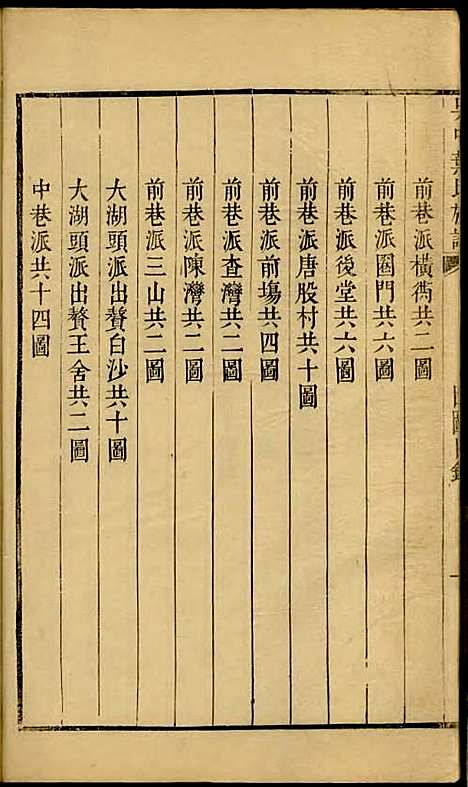 前巷派橫衖共二圖
前巷派園門共六圖
前巷派後堂共六圖
前巷派唐股村共十圖
前巷派前塲共四圖
前巷派查灣共二圖
前巷派陳灣共二圖
前巷派三山共二圖
大湖頭派出贅白沙共十圖
大湖頭派出贅王舍共二圖
中巷派共十四圖